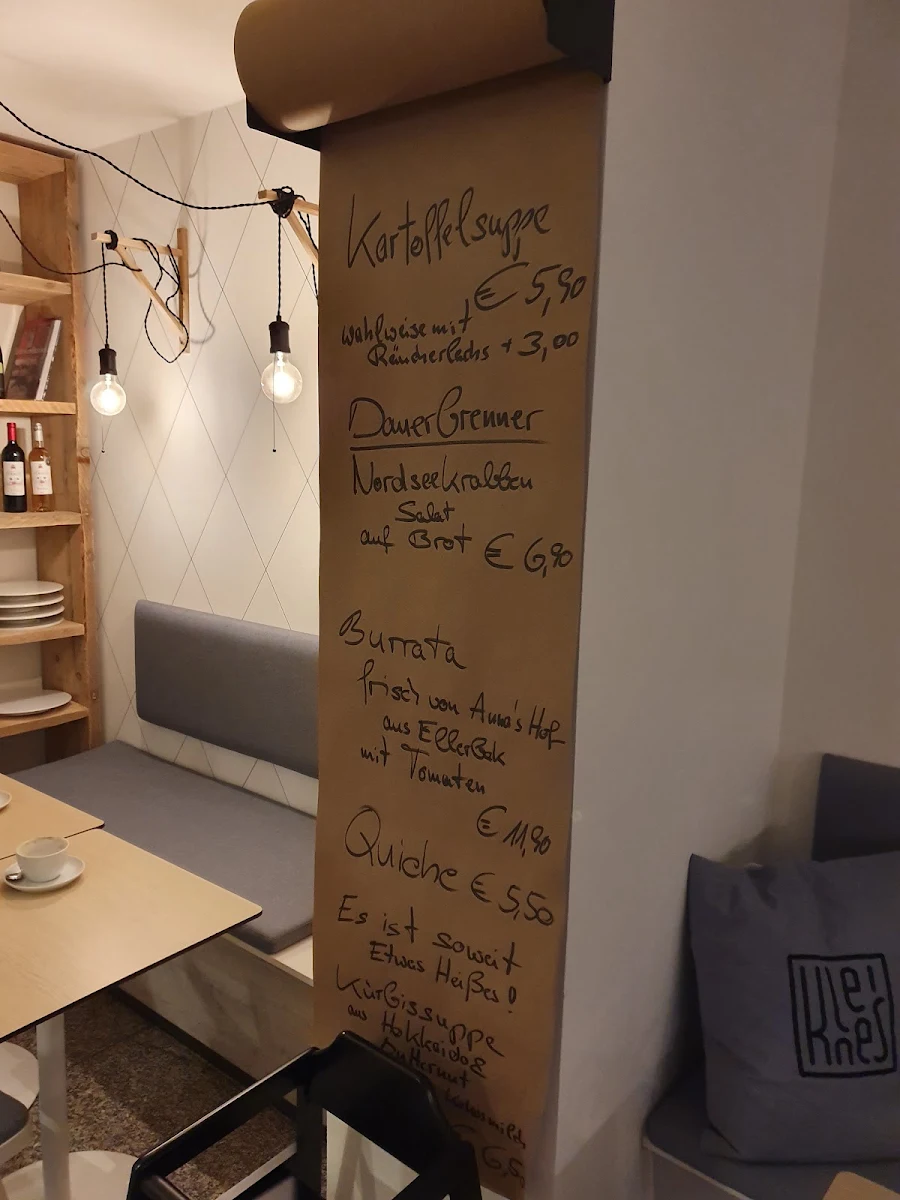 Kartoffelsuppe
€ 5,90
wahlweise mit
Räucherlachs + 3,00
Dauerbrenner
Nordseekrabben
Salat
auf Brot € 6,90
Burrata
frisch von Anna's Hof
aus Ellerbek
mit Tomaten
€ 11,90
Quiche € 5,50
Es ist soweit
Etwas Heißes!
Kürbissuppe
aus Hokkaido &
Butternut
Kokosmilch
€ 6,5
kleines